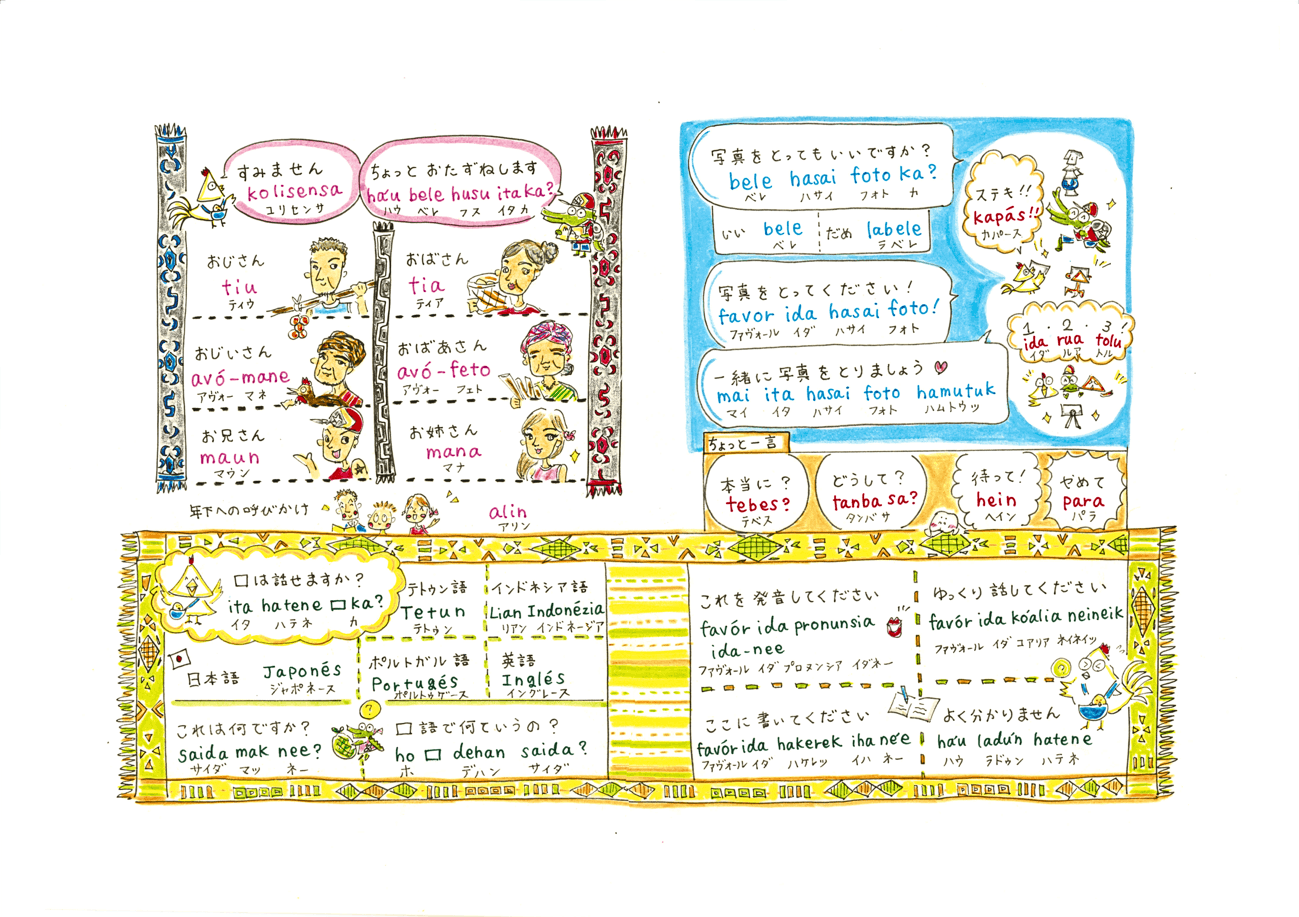 すみません
kolisensa
ユリセンサ
ちょっと おたずねします
ha'u bele husu ita ka?
ハウ ベレ フス イタ カ
おじさん
tiu
ティウ
おばさん
tia
ティア
おじいさん
avó-mane
アヴォー マネ
おばあさん
avó-feto
アヴォー フェト
お兄さん
maun
マウン
お姉さん
mana
マナ
年下への呼びかけ
alin
アリン
写真をとってもいいですか？
bele hasai foto ka?
ベレ ハサイ フォト カ
いい bele
ベレ
だめ labele
ラベレ
写真をとってください！
favor ida hasai foto!
ファヴォール イダ ハサイ フォト
一緒に写真をとりましょう♡
mai ita hasai foto hamutuk
マイ イタ ハサイ フォト ハムトウッ
ステキ!!
kapás!!
カパース
1・2・3！
ida rua tolu
イダ ルア トル
ちょっと一言
本当に？
tebes?
テベス
どうして？
tanba sa?
タンバサ
待って！
hein
ヘイン
やめて
para
パラ
□は話せますか？
ita hatene □ ka?
イタ ハテネ カ
テトゥン語
Tetun
テトゥン
インドネシア語
Lian Indonézia
リアン インドネージア
日本語 Japonés
ジャポネース
ポルトガル語
Portugés
ポルトゥゲース
英語
Inglés
イングレース
これは何ですか？
saida mak nee?
サイダ マッ ネー
□語で何ていうの？
ho □ dehan saida?
ホ デハン サイダ
これを発音してください
favór ida pronunsia
ida-nee
ファヴォール イダ プロヌンシア イダネー
ゆっくり話してください
favór ida ko'alia neineik
ファヴォール イダ コアリア ネイネイッ
ここに書いてください
favór ida hakerek iha ne'e
ファヴォール イダ ハケレッ イハ ネー
よく分かりません
ha'u ladu'n hatene
ハウ ラドゥン ハテネ